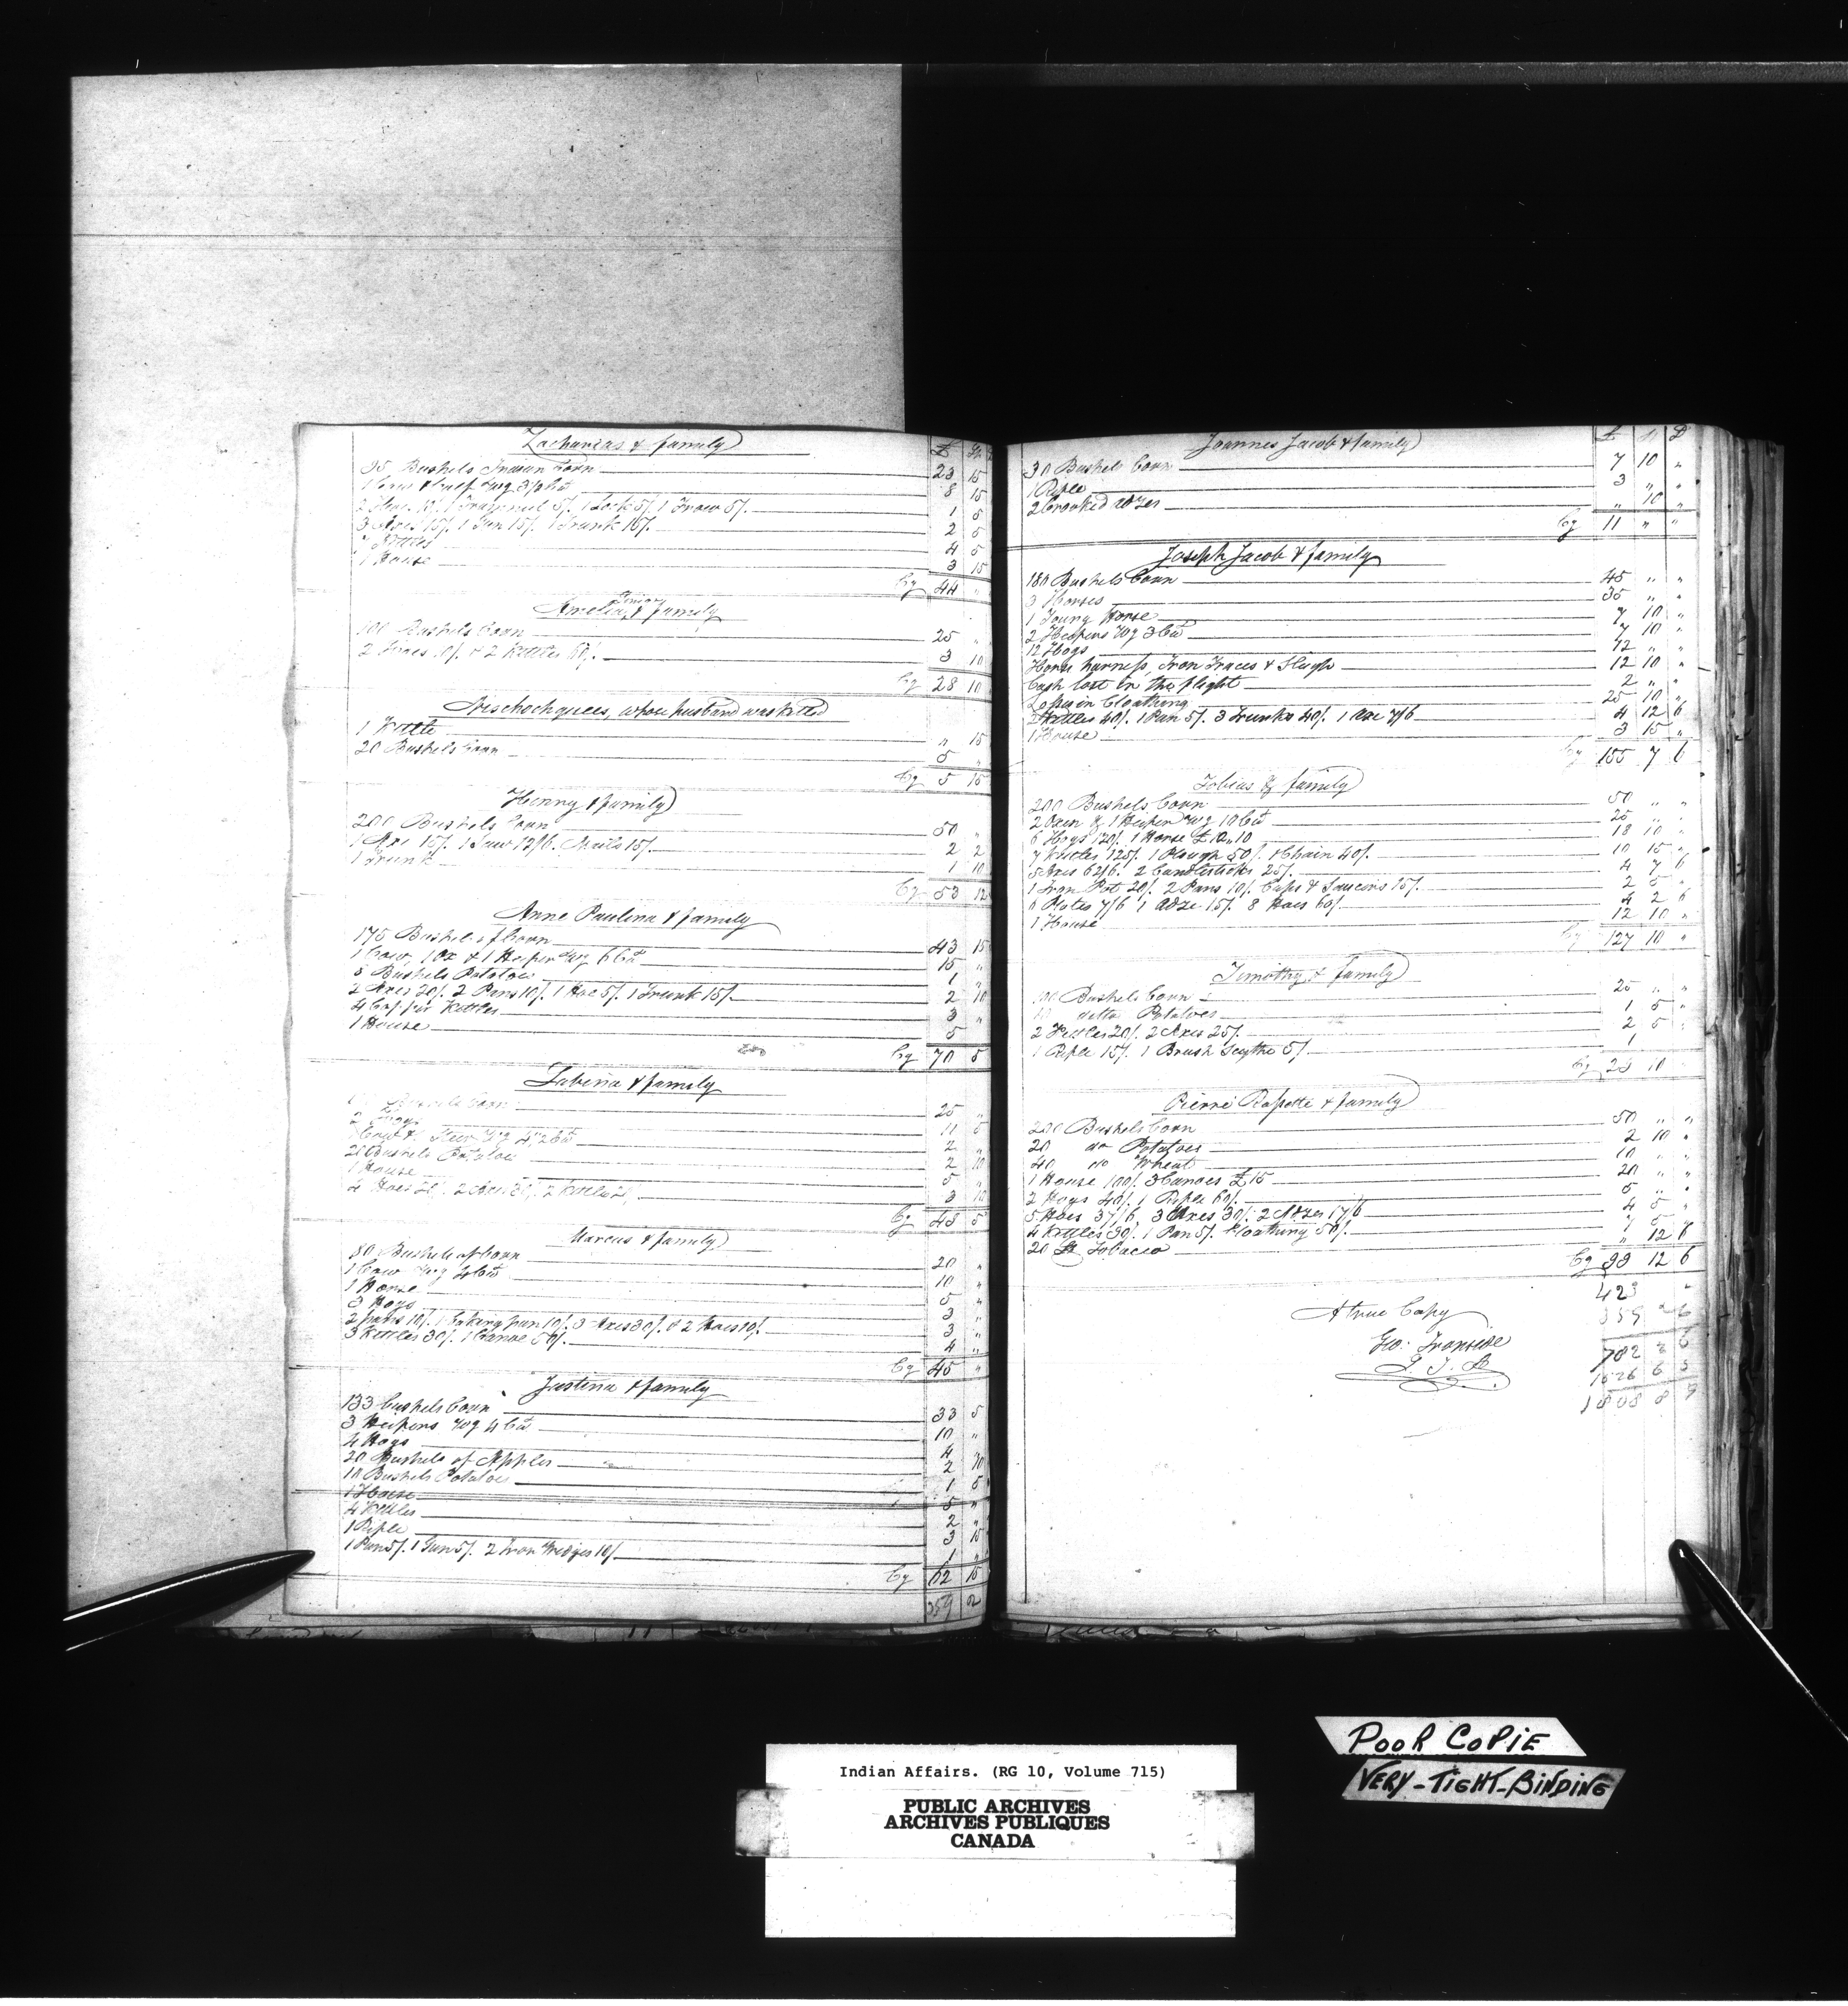 Zacharias & family
£ Sh
95 Bushels Indian Corn 23 15
1 Cow & Calf wg 3 1/2 Ct 8 15
2 Hoes 10/. 1 Trammel 5/. 1 Lock 5/. 1 Frow 5/. 1 5
3 Axes 15/. 1 Gun 15/. 1 Trunk 15/. 2 5
Kettles 4 5
1 House 3 15
Cy 44 "
Amelia, Senior & family
100 Bushels Corn 25 "
2 Hoes 10/. & 2 Kettles 60/. 3 10
Cy 28 10
whose husband was killed
1 Kettle " 15
20 Bushels Corn 5 "
Cy 5 15
Henry & family
200 Bushels Corn 50 "
1 Axe 15/. 1 Saw 12/6. Nails 15/. 2 2
1 Trunk 1 10
Cy 53 12
Anne Paulina & family
175 Bushels of Corn 43 15
1 Cow, 1 Ox & 1 Heifer wg 6 Ct 15 "
5 Bushels Potatoes 1 "
2 Axes 20/. 2 Pans 10/. 1 Hoe 5/. 1 Trunk 15/. 2 10
4 Copper Kettles 3 "
1 House 5
Cy 70 5
Sabina & family
Bushels Corn 25 "
2 Hogs
Cow & Steer wg 4 1/2 Ct 11 5
20 Bushels Potatoes 2 10
1 House 5 "
4 Hoes 20/. 2 Axes 30/. 2 Kettles 3 10
Cy 48 5
Marcus & family
80 Bushels of Corn 20 "
1 Cow wg 4 Ct 10 "
1 Horse 5 "
3 Hogs 3 "
2 pans 10/. 1 baking pan 10/. 3 Axes 30/. & 2 Hoes 10/. 3 "
3 Kettles 30/. 1 Canoe 50/. 4 "
Cy 45 "
Justina & family
133 bushels Corn 33 5
3 Heifers wg 4 Ct 10 "
4 Hogs 4 "
20 Bushels of Apples 2 10
10 Bushels Potatoes 1 5
1 House 5 "
4 Kettles 2 "
1 Rifle 3 15
1 Pan 5/. 1 Gun 5/. 2 Iron Wedges 10/. 1 "
Cy 62 15
359 2
Joannes Jacob & family
£ S D
30 Bushels Corn 7 10 "
1 Rifle 3 " "
2 Crooked adzes " 10 "
Cy 11 " "
Joseph Jacob & family
180 Bushels Corn 45 " "
3 Horses 35 " "
1 Young Horse 7 10 "
2 Heifers wg 3 Ct 7 10 "
12 Hogs 12 " "
Horse harness, Iron Traces & Sleigh 12 10 "
Cash lost in the flight 2 " "
Loss in Cloathing 25 10 "
Kettles 40/. 1 Pan 5/. 3 Trunks 40/. 1 Axe 7/6 4 12 6
1 House 3 15 "
Cy 155 7 6
Tobias & family
200 Bushels Corn 50 " "
2 Oxen & 1 Heifer wg 10 Ct 25 " "
6 Hogs 120/. 1 Horse £12,,10 18 10 "
7 Kettles 125/. 1 Plough 50/. & Chain 40/. 10 15 "
5 Axes 62/6. 2 Candlesticks 25/. 4 7 6
1 Iron Pot 20/. 2 Pans 10/. Cups & Saucers 15/. 2 5 "
6 Plates 7/6 1 Adze 15/. 8 Hoes 60/. 4 2 6
1 House 12 10 "
Cy 127 10 "
Timothy & family
100 Bushels Corn 25 " "
10 ditto Potatoes 1 5 "
2 Kettles 20/. 2 Axes 25/. 2 5 "
1 Rifle 15/. 1 Brush Scythe 5/. 1
Cy 29 10
Pierre & family
200 Bushels Corn 50 " "
20 do Potatoes 2 10 "
40 do Wheat 10 " "
1 House 100/. 3 Canoes £15 20 " "
2 Hogs 40/. 1 Rifle 60/. 5 " "
5 Hoes 37/6, 3 Axes 30/. 2 Adzes 17/6 4 5 "
4 Kettles 30/. 1 Pan 5/. Cloathing 50/.
20 lb Tobacco " 12 6
Cy 99 12 6
423 "
359 2 6
782 2 6
1026 6 3
1808 8 9
A true Copy
Geo: Ironside
Indian Affairs. (RG 10, Volume 715)
PUBLIC ARCHIVES
ARCHIVES PUBLIQUES
CANADA
POOR COPIE
VERY-TIGHT-BINDING